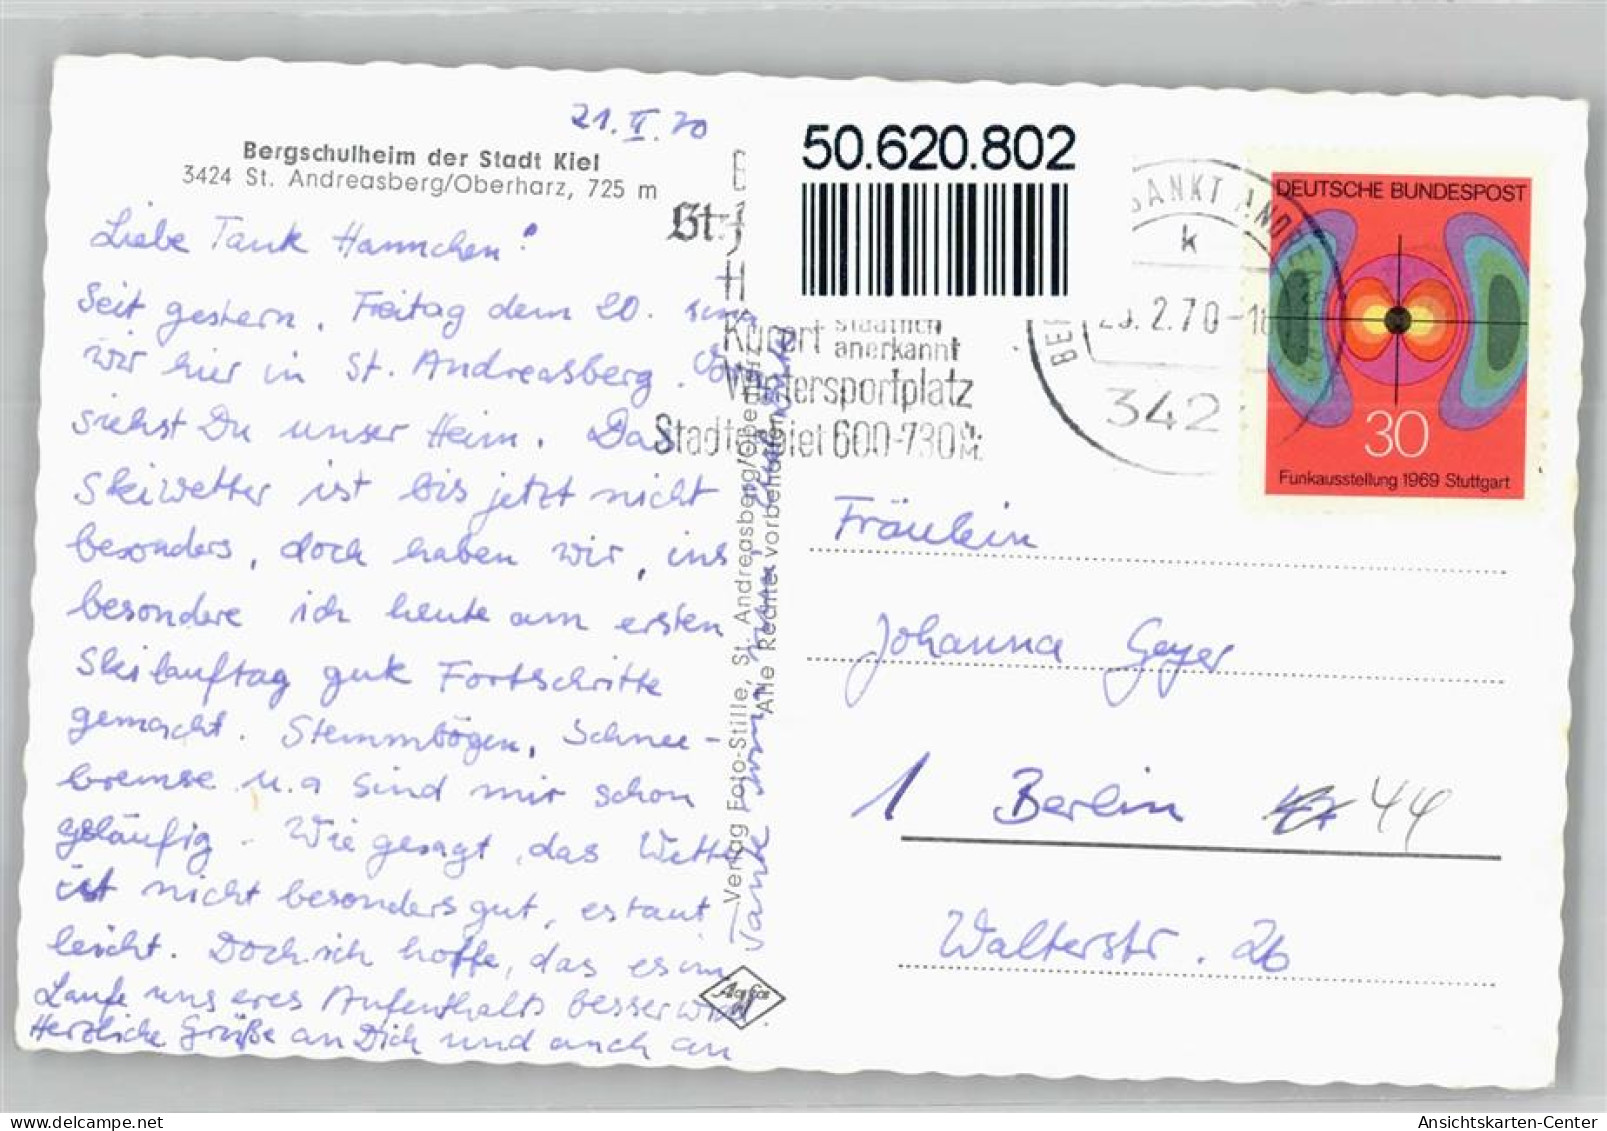 21.II.70
Bergschulheim der Stadt Kiel
3424 St. Andreasberg/Oberharz, 725 m
Liebe Tante Hannchen!
Seit gestern, Freitag dem 20. sind
wir hier in St. Andreasberg. Vorn
siehst Du unser Heim. Das
Skiwetter ist bis jetzt nicht
besonders, doch haben wir, ins
besondere ich heute am ersten
Skilauftag gute Fortschritte
gemacht. Stemmbögen, Schnee-
bremse u.a sind mir schon
geläufig. Wie gesagt, das Wetter
ist nicht besonders gut, es taut
leicht. Doch ich hoffe, das es im
Laufe unseres Aufenthalts besser wird.
Herzliche Grüße an Dich und auch an
Tante
Verlag Foto-Stille, St. Andreasberg/Oberharz
Alle Rechte vorbehalten
Agfa
50.620.802
St.
Kurort staatlich
anerkannt
Wintersportplatz
Stadtgebiet 600-730 M.
SANKT ANDREASBERG
k
.2.70-18
342
DEUTSCHE BUNDESPOST
30
Funkausstellung 1969 Stuttgart
Fräulein
Johanna Geyer
1 Berlin 44
Walterstr. 26
Ansichtskarten-Center